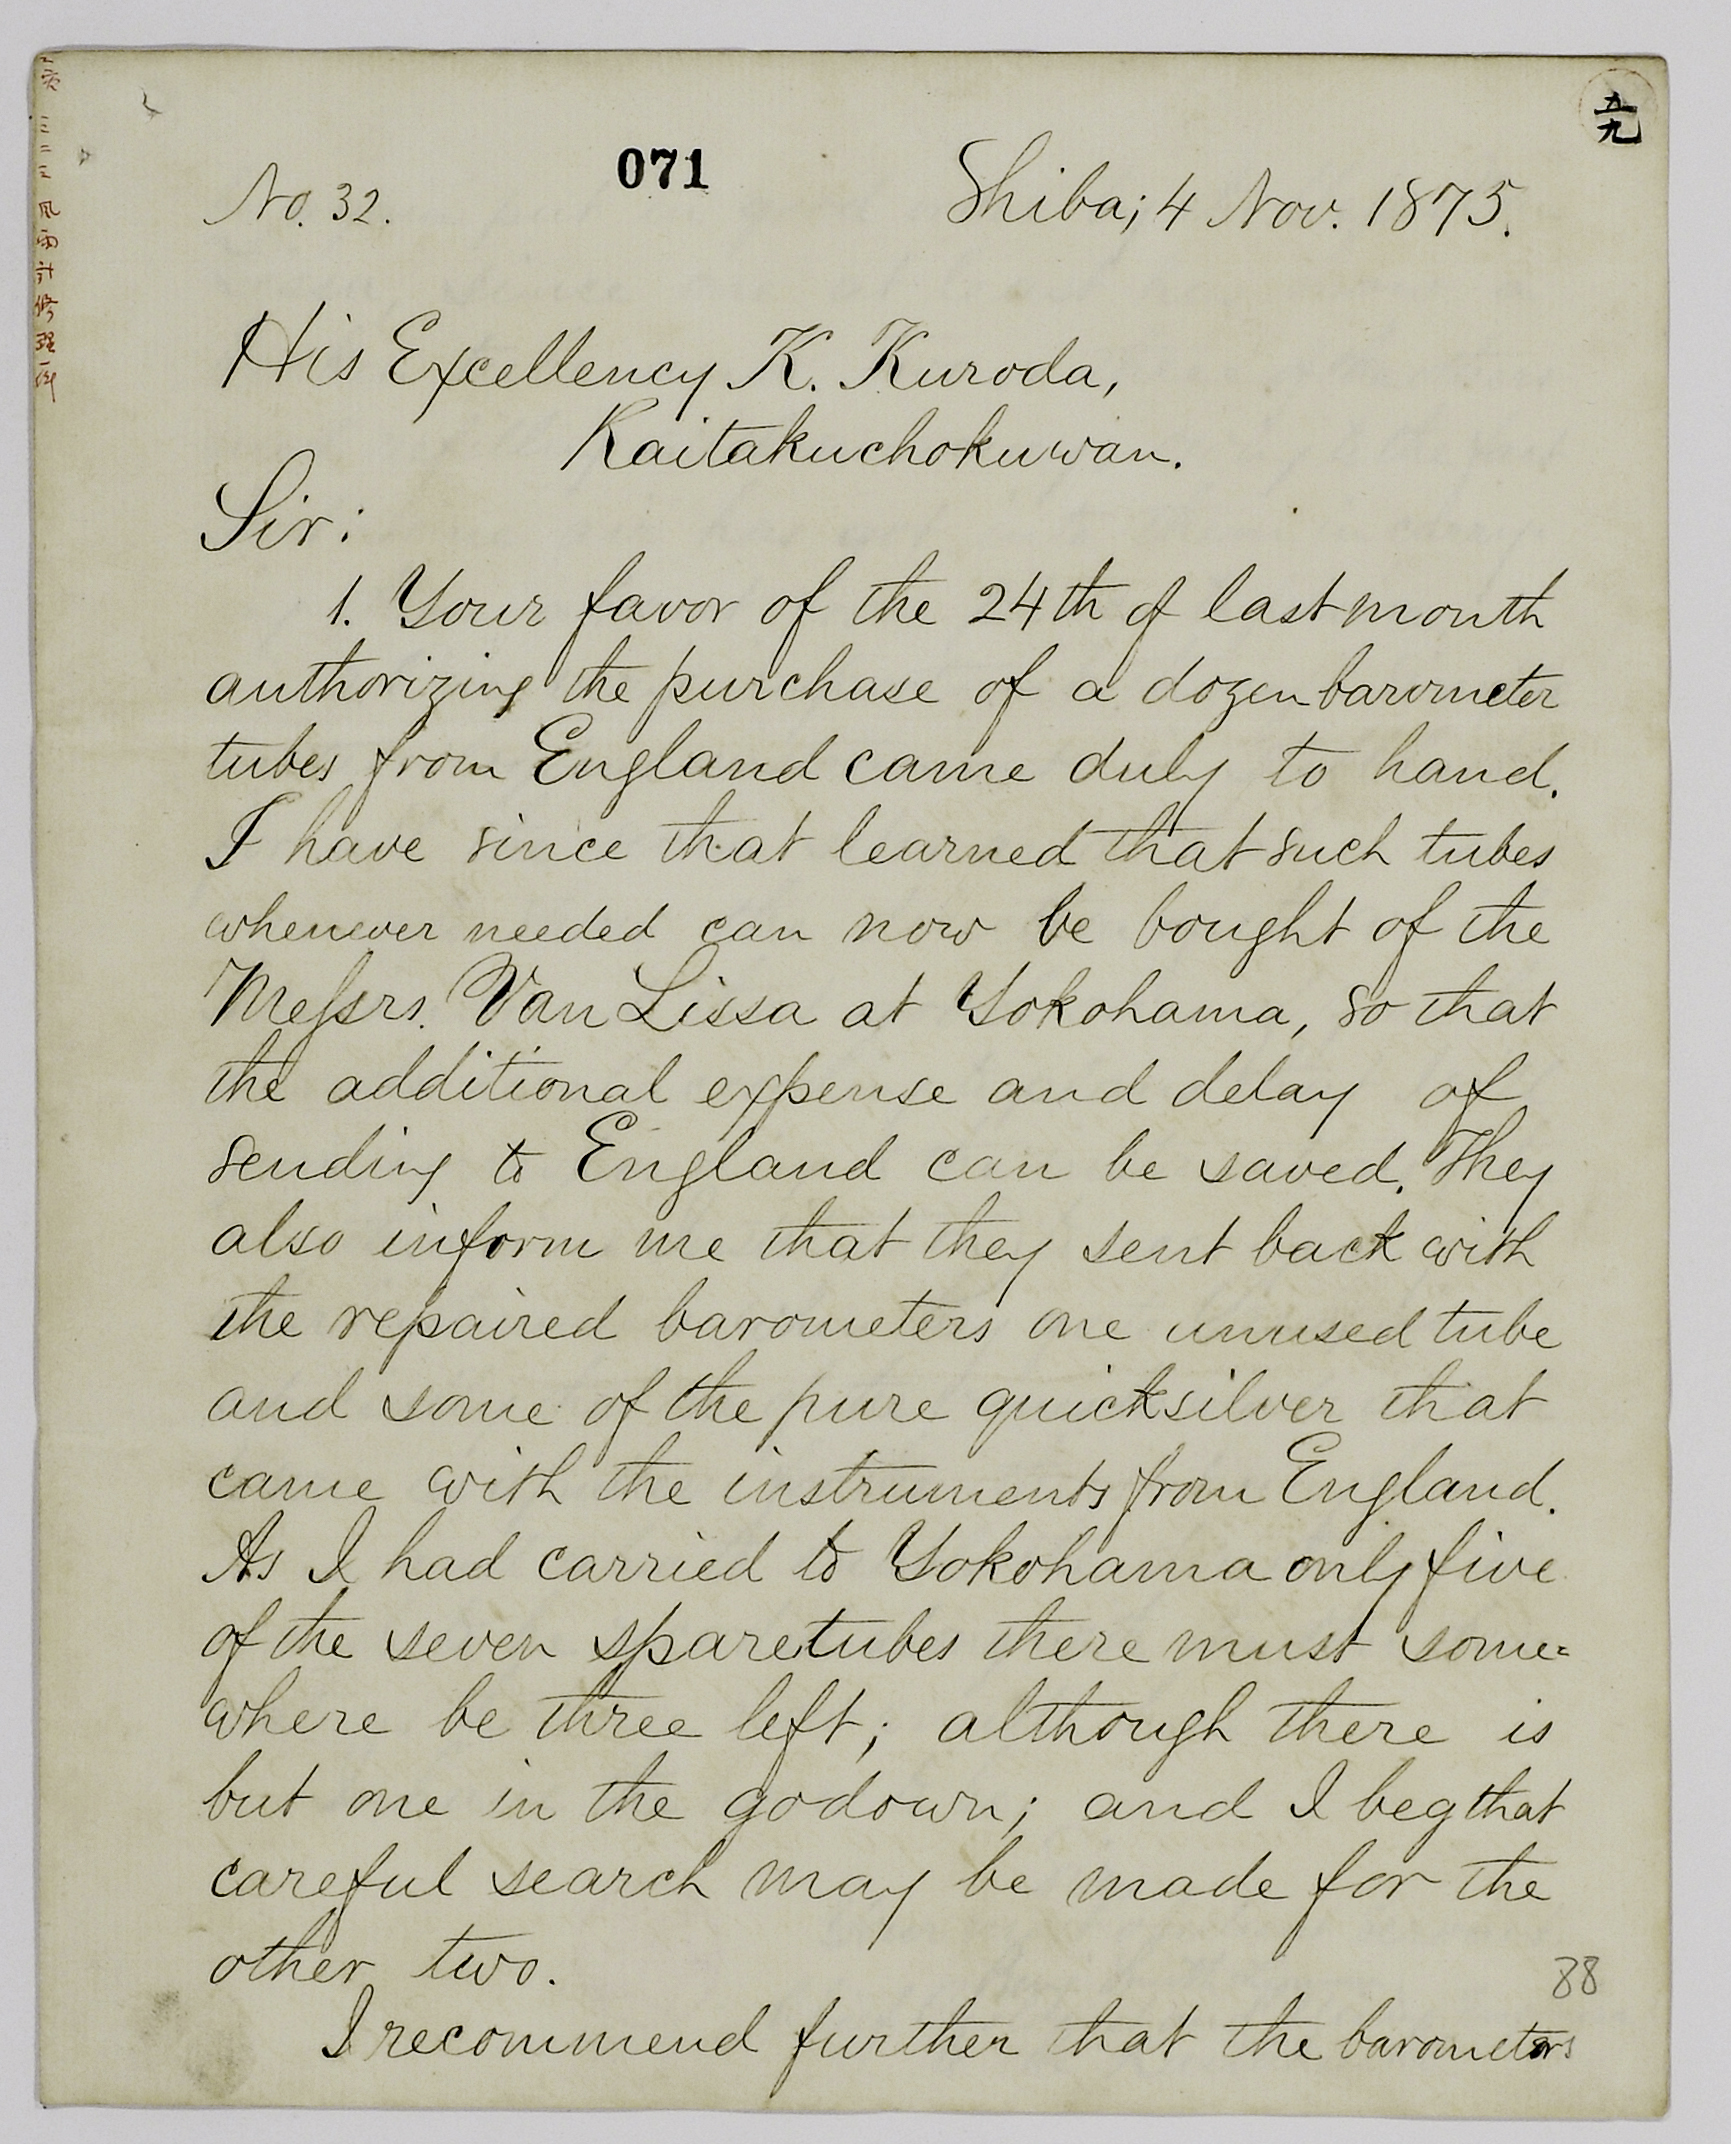 五九
071
No. 32.
Shiba; 4 Nov. 1875.
His Excellency K. Kuroda,
Kaitakuchokuwan.
Sir:
1. Your favor of the 24th of last month
authorizing the purchase of a dozen barometer
tubes from England came duly to hand.
I have since that learned that such tubes
whenever needed can now be bought of the
Messrs. Van Lissa at Yokohama, so that
the additional expense and delay of
sending to England can be saved. They
also inform me that they sent back with
the repaired barometers one unused tube
and some of the pure quicksilver that
came with the instruments from England.
As I had carried to Yokohama only five
of the seven spare tubes there must some=
where be three left; although there is
but one in the godown; and I beg that
careful search may be made for the
other two.
88
I recommend further that the barometers
風雨計修理